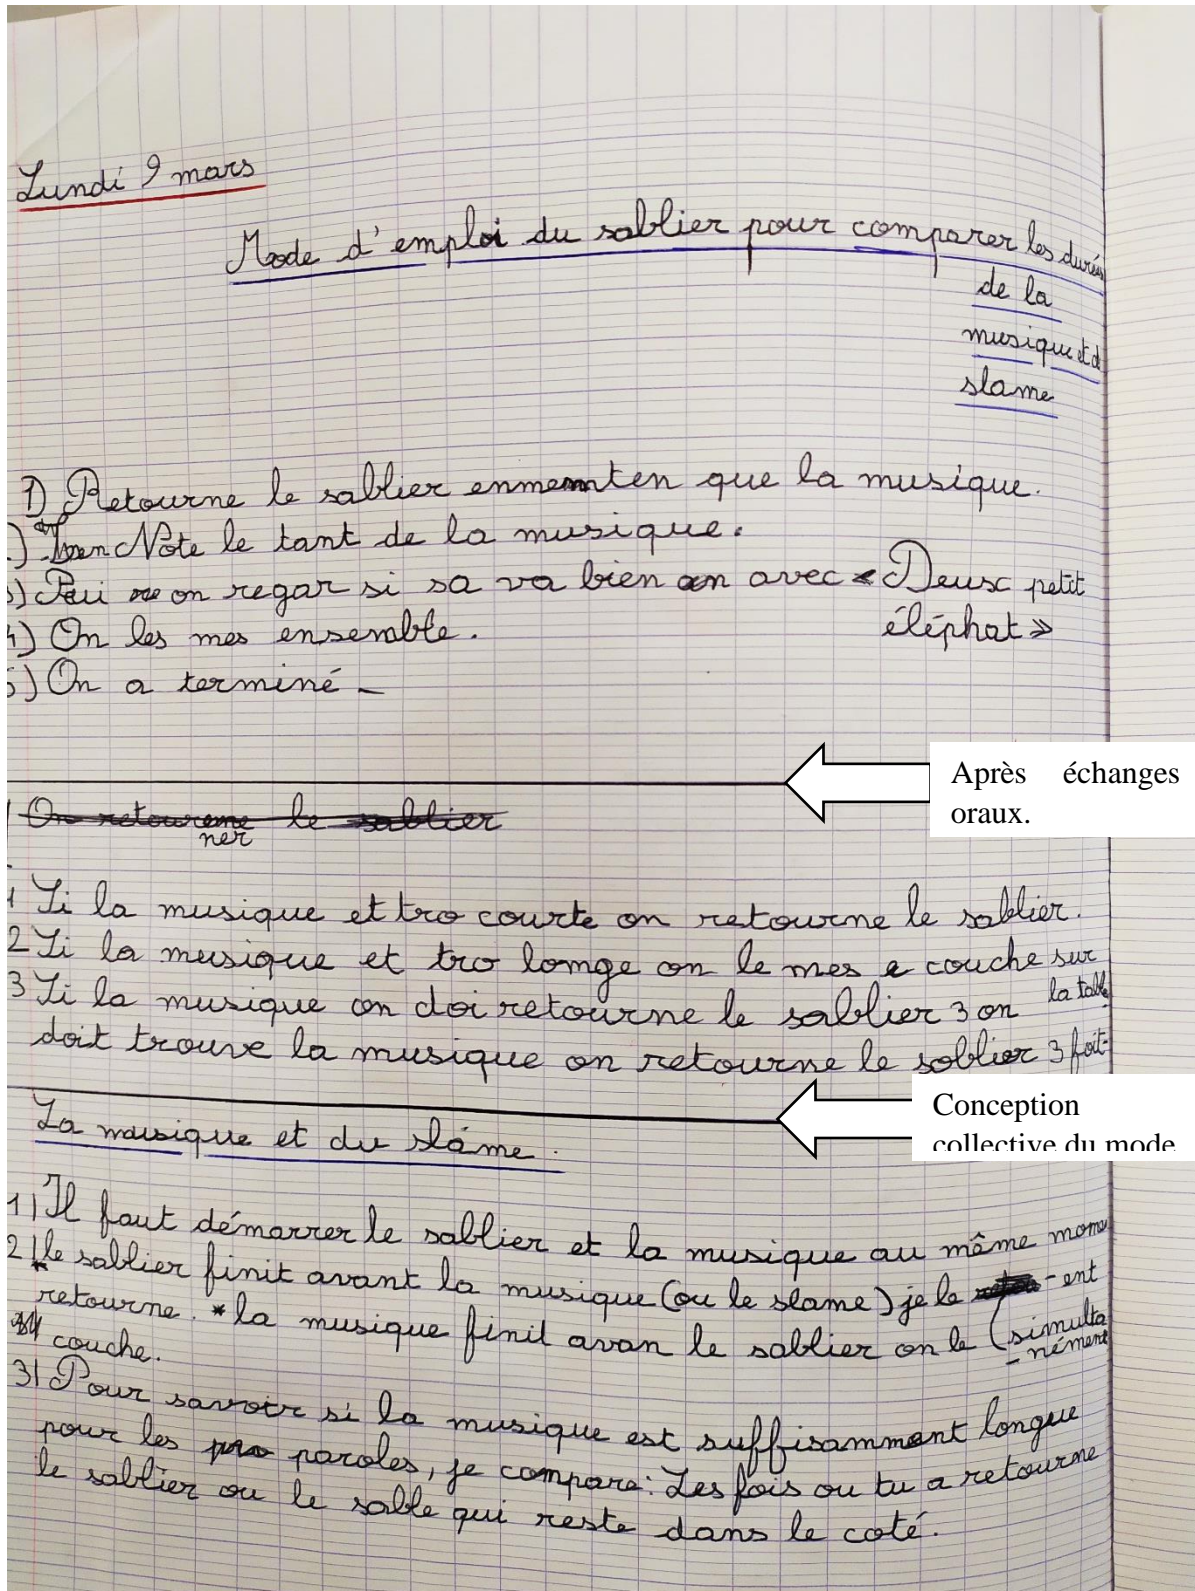 Lundi 9 mars
Mode d'emploi du sablier pour comparer les durées
de la
musique et d
slame
1) Retourne le sablier enmemten que la musique.
) Note le tant de la musique.
) Pui on regar si sa va bien an avec « Deux petit
éléphat »
4) On les mes ensemble.
5) On a terminé -
Après échanges
oraux.
On retourene le sablier
ner
1 Si la musique et tro courte on retourne le sablier.
2 Si la musique et tro lomge on le mes e couche sur
la table
3 Si la musique on doi retourne le sablier 3 on
doit trouve la musique on retourne le soblier 3 foit-
Conception
collective du mode
La musique et du slame.
1) Il faut démarrer le sablier et la musique au même mome
-ent
(simulta
-nément
2) le sablier finit avant la musique (ou le slame) je le
retourne. * la musique finit avan le sablier on le
couche.
3) Pour savoir si la musique est suffisamment longue
pour les paroles, je compare: Les fois ou tu a retourne
le sablier ou le sable qui reste dans le coté.